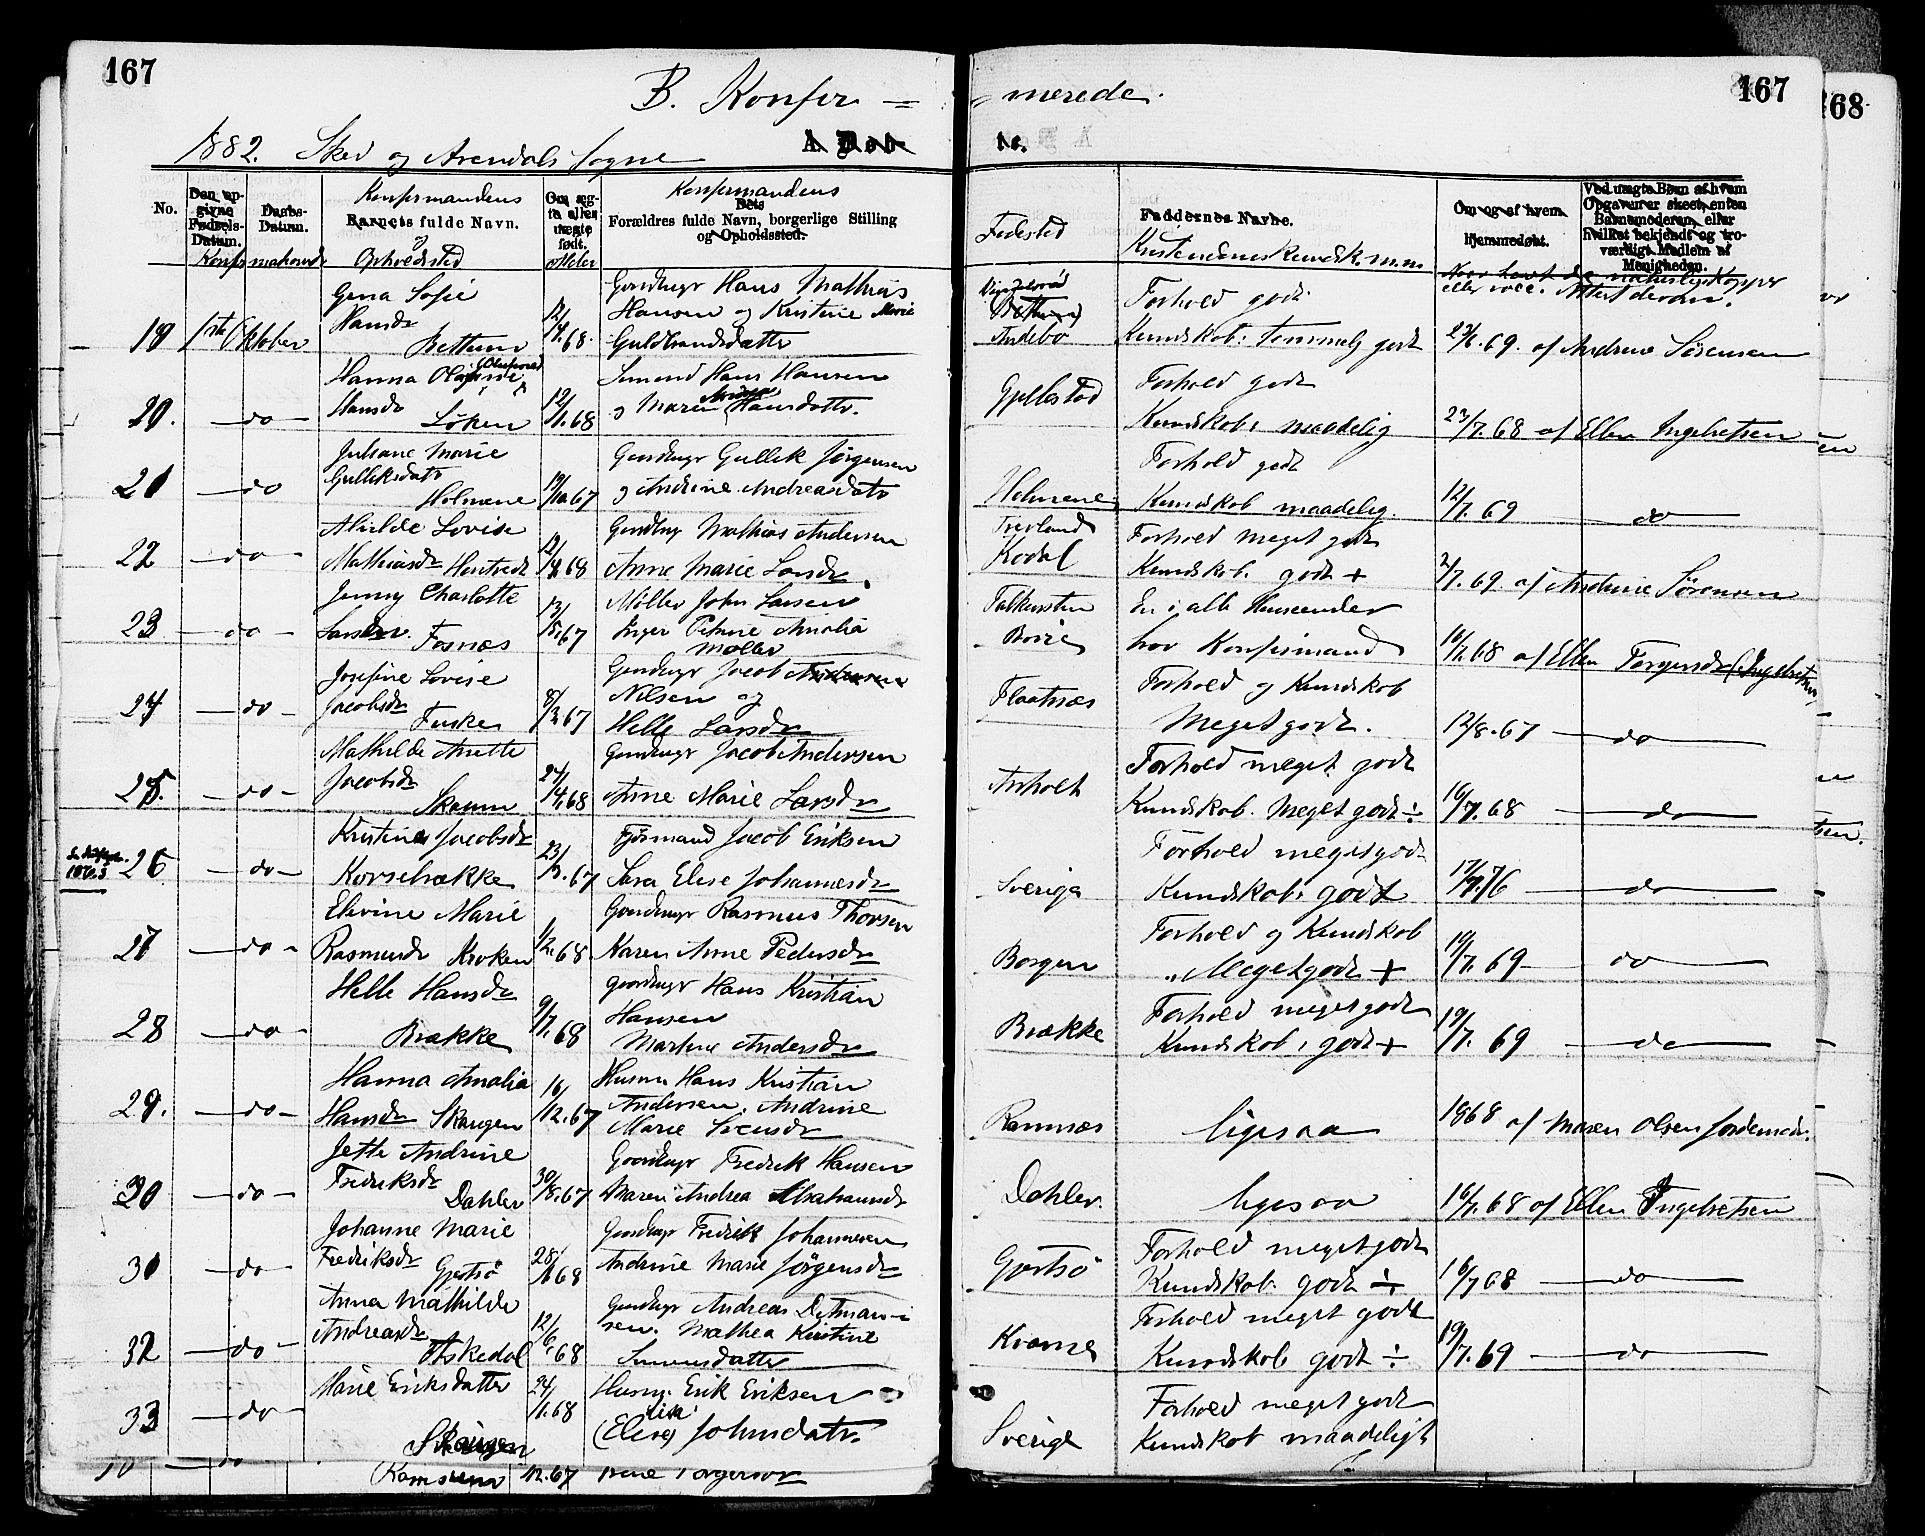 167
B. Konfir =
1882. Sked og Arendals Sogne
A. Døb-
No.
Den an-
givne
Fødsels-
Datum.
Daabs-
Datum.
Konfirmandens
Barnets fulde Navn.
Opholdsted
Om æg-
te eller
uægte
født.
Konfirmandens
Dets
Forældres fulde Navn, borgerlige Stilling
og Opholdssted.
19 1ste Oktober Gina Sofie
Hansdr
Bettum
12/4.68.
Gaardbrugr Hans Mathias
Hansen og Kristine Marie
Guldbrandsdatter
20. do Hanna
Hansdr Löken
12/1.68
Hans Hansen
og Maren Hansdattr.
21 do Juliane Marie
Gulliksdatr
Holmene
19/10 67
Gaardbrugr Gullik Jörgensen
og Andrine Andreasdatr
22 do Lovise
Mathiasdr
68
Gaardbrug Mathias Andersen
Anne Marie Larsdr.
23 do Jenny Charlotte
Fosnæs
67
Møller John Larsen
Inger Petrine Amalia
Møller
24 do Josefine Lovise
Jacobsdr
67
Gaardbrugr Jacob Andersen
Nilsen og
Helle Larsdr
25. do Mathilde Anette
Jacobsdr
Skaum
24/4.68
Gaardbrugr Jacob Andersen
Anne Marie Larsdr
26 do Kristine Jacobsdr
Korsebrække
23/ .67
Jacob Eriksen
Sara Elise Johannesdr
27 do Elevine Marie
Rasmusdr Kroken
1/2.68
Gaardbrugr Rasmus Thorsen
Karen Anne Pedersdr
28 do Helle Hansdr
Brække
9/1.68
Gaardbrugr Hans Kristian
Hansen
Martine Andersdr
29. do Hanna Amalia
Hansdr Skaugen
16/12.67
Husm Hans Kristian
Andersen. Andrine
Marie
30 do Jette Andrine
Fredriksdr
Dahler
30/8.67
Gaardbrugr Fredrik Hansen
Maren Andrea Abrahamsdr
30 do Johanne Marie
Fredriksdr Gjertsö
28/ 68
Gaardbrugr Fredrik Johannesen
Andrine Marie Jörgensdr
32 do Anna Mathilde
Andreasdr
Askedal
12/6.68
Gaardbrugr Andreas Ditman-
sen. Mathea Kirstine
Simensdatter
33 do Marie Eriksdatter
Skaugen
24/1.68
Husm. Erik Eriksen
(Elise) Johnsdatr.
12.67
167
168
merede.
Fødested
Faddernes Navne.
Kristendomskundsk. m.m
Om og af hvem
hjemmedøbt.
Ved uægte Børn af hvem
Opgaven er skeet, enten
Barnemoderen, eller
hvilket bekjendt og tro-
værdigt Medlem af
Menigheden.
Andebo
Forhold godt
Kundskab: temmelig godt
69. af Andrine Sørensen
Gjellestad
Forhold godt
Kundskab: maadelig
23/7.68 af Ellen Ingebretsen
Holmene
Forhold godt
Kundskab maadelig.
12/7.69 do
Kodal
Forhold meget godt
Kundskab. godt +
2/7.69. af Andrine Sörensen
Falkensten
Borre
En i alle Henseender
bra Konfirmand
10/7.68 af Ellen Torgersdr (Ingebretsen)
Flaatnæs
Forhold og Kundskab
Meget godt.
12/8.67 do
Anholt
Forhold meget godt
Kundskab. Meget godt ÷
16/7.68 do
Sverige
Forhold meget godt
Kundskab: godt
17/7.76 do
Borgen
Forhold og Kundskab
Meget godt +
19/7.69 do
Brække
Forhold meget godt
Kundskab: godt +
19/7. 69 do
Ramnæs
ligesaa
1868 af Maren Olsen Jordemodr.
Dahler.
ligesaa
16/7.68 af Ellen Ingebretsen
Gjertsö
Forhold meget godt
Kundskab. godt ÷
16/7 68 do
Kvarne
Forhold meget godt
Kundskab godt ÷
19/7.69 do
Sverige
Forhold meget godt
Kundskab maadeligt